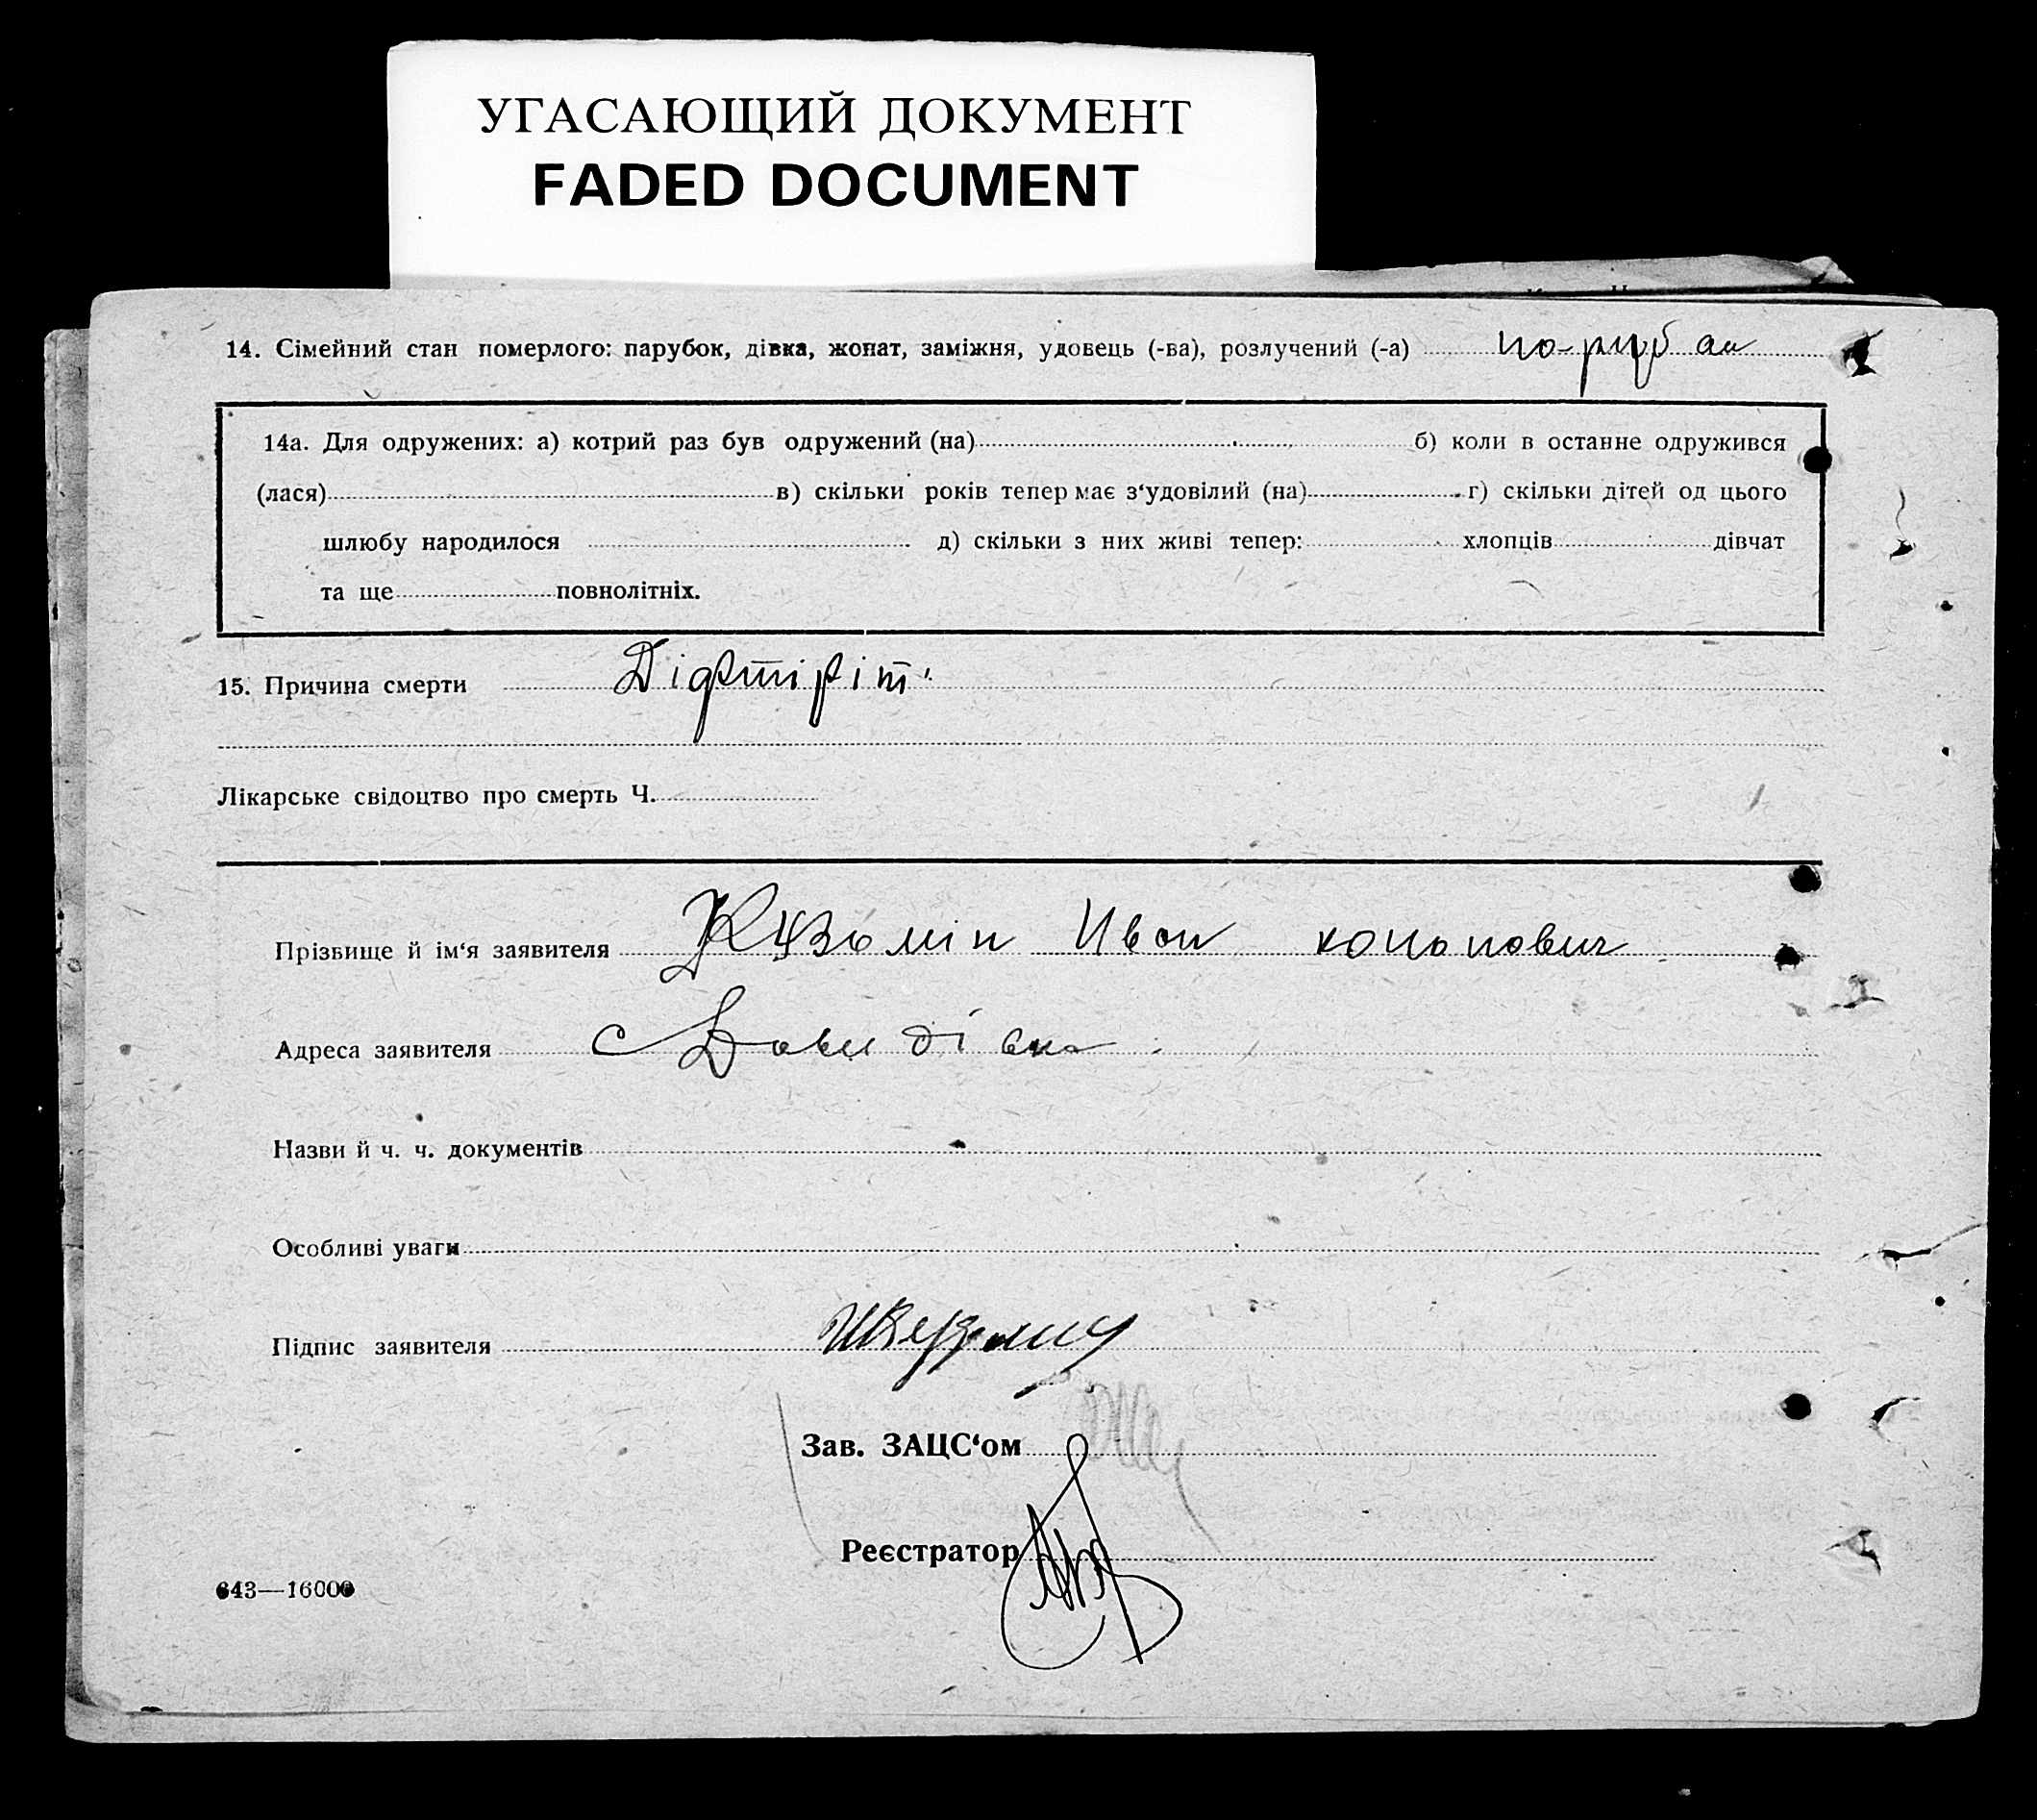 УГАСАЮЩИЙ ДОКУМЕНТ
FADED DOCUMENT
14. Сімейний стан померлого: парубок, дівка, жонат, заміжня, удовець (-ва), розлучений (-а)
14а. Для одружених: а) котрий раз був одружений (на) б) коли в останнє одружився
(лася) в) скільки років тепер має з‘удовілий (на) г) скільки дітей од цього
шлюбу народилося д) скільки з них живі тепер: хлопців дівчат
та ще повнолітніх.
15. Причина смерти Діфтіріт.
Лікарське свідоцтво про смерть Ч.
Прізвище й ім‘я заявителя Кузьмін Иван
Адреса заявителя с Давидівка
Назви й ч. ч. документів
Особливі уваги
Підпис заявителя
Зав. ЗАЦС‘ом
Реєстратор
643—16000